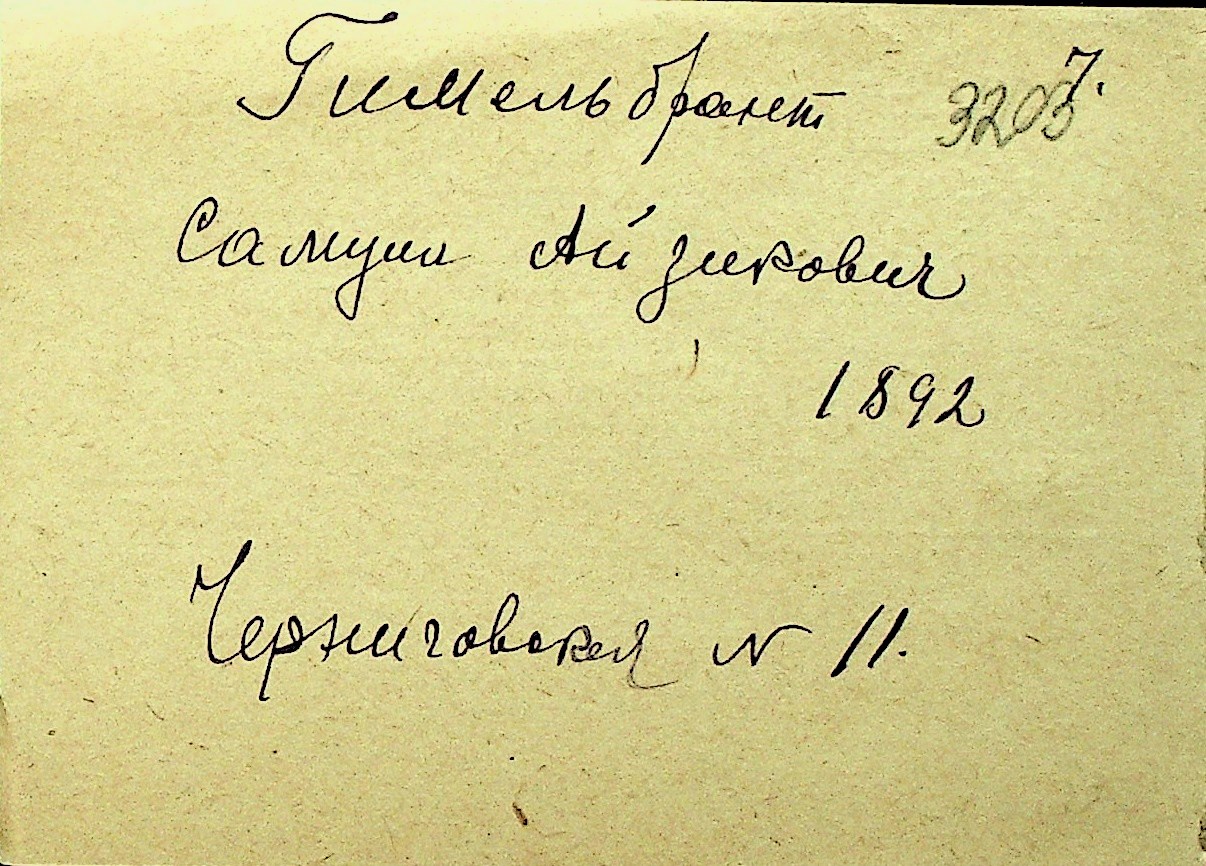 Гимельбрант 7.
3203
Самуил Айзикович
1892
Черниговская N 11.